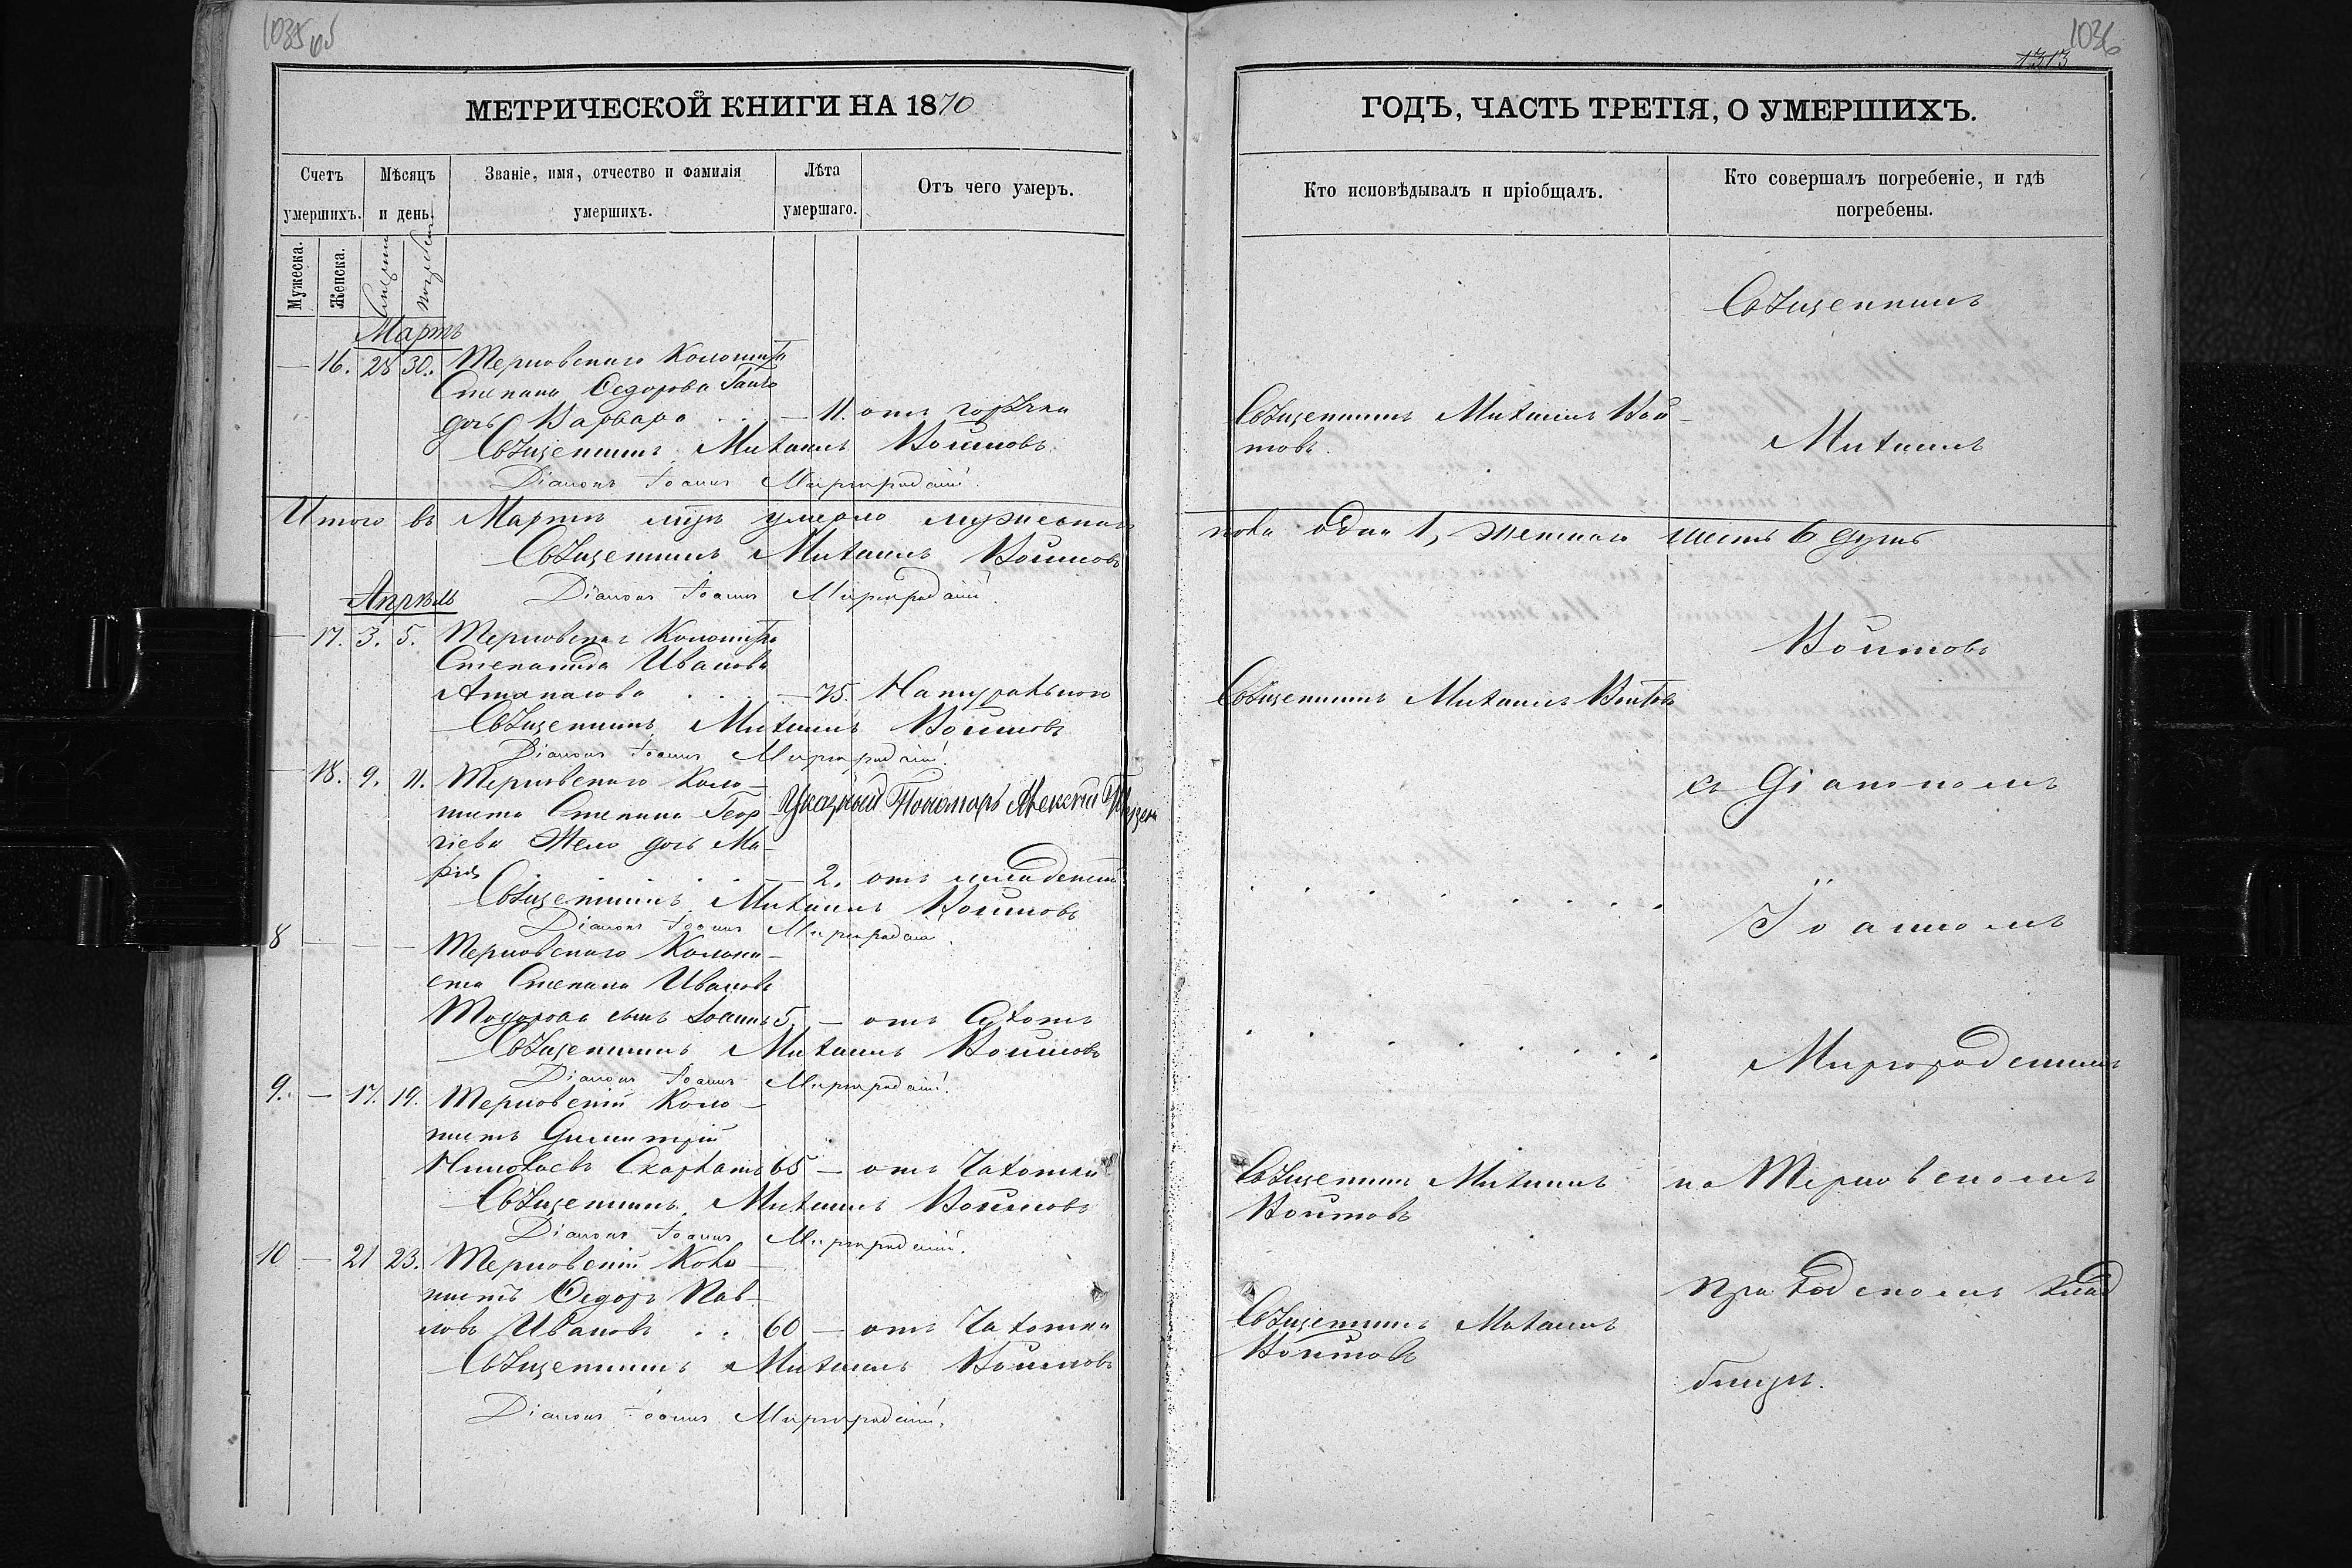 1035
65
МЕТРИЧЕСКОЙ КНИГИ НА 1870
Счетъ умершихъ.
Мѣсяцъ и день.
Званіе, имя, отчество и фамилія умершихъ.
Лѣта умершаго.
Отъ чего умеръ.
Мужеска.
Женска.
Смерти
погребен.
Мартъ
— 16. 28 30. Терновскаго Колониста
Степана Ѳедорова
дочь Варвара . . . — 11. отъ горячки
Священникъ Михаилъ Войтовъ
Діаконъ Іоаннъ Миргородскій.
Итого въ Мартѣ м‑цѣ умерло мужескаго
Священникъ Михаилъ Войтовъ
Діаконъ Іоаннъ Миргородскій.
Апрѣль
— 17. 3. 5. Терновская Колонистка
Степанида Иванова
Атанасова . . . — 75. Натуральною
Священникъ Михаилъ Войтовъ
Діаконъ Іоаннъ Миргородскій.
— 18. 9. 11. Терновскаго Коло-
ниста Степана Геор-
гіева Жело дочь Ма-
рія . . . — 2. отъ младенчес
Указный Пономарь Алексій
Священникъ Михаилъ Войтовъ
Діаконъ Іоаннъ Миргородскій.
8 — — — Терновскаго Колони-
ста Степана Иванова
Тодорова сынъ Іоаннъ 5. — отъ
Священникъ Михаилъ Войтовъ
Діаконъ Іоаннъ Миргородскій.
9. — 17. 19. Терновскій Коло-
нистъ Димитрій
Николаевъ Скарлатъ 65 — отъ Чахотки
Священникъ Михаилъ Войтовъ
Діаконъ Іоаннъ Миргородскій.
10 — 21 23. Терновскій Коло-
нистъ Ѳедоръ Пав-
ловъ Ивановъ . . 60 — отъ Чахотки
Священникъ Михаилъ Войтовъ
Діаконъ Іоаннъ Миргородскій.
1036
1313
ГОДЪ, ЧАСТЬ ТРЕТІЯ, О УМЕРШИХЪ.
Кто исповѣдывалъ и пріобщалъ.
Кто совершалъ погребеніе, и гдѣ погребены.
Священникъ
Священникъ Михаилъ Вой-
товъ.
Михаилъ
пола одна 1, женскаго шесть 6 душъ
Войтовъ
Священникъ Михаилъ Войтовъ
съ Діакономъ
Іоанномъ
Миргородскимъ
Священникъ Михаилъ
Войтовъ
на Терновскомъ
Священникъ Михаилъ
Войтовъ
приходскомъ клад
бищѣ.